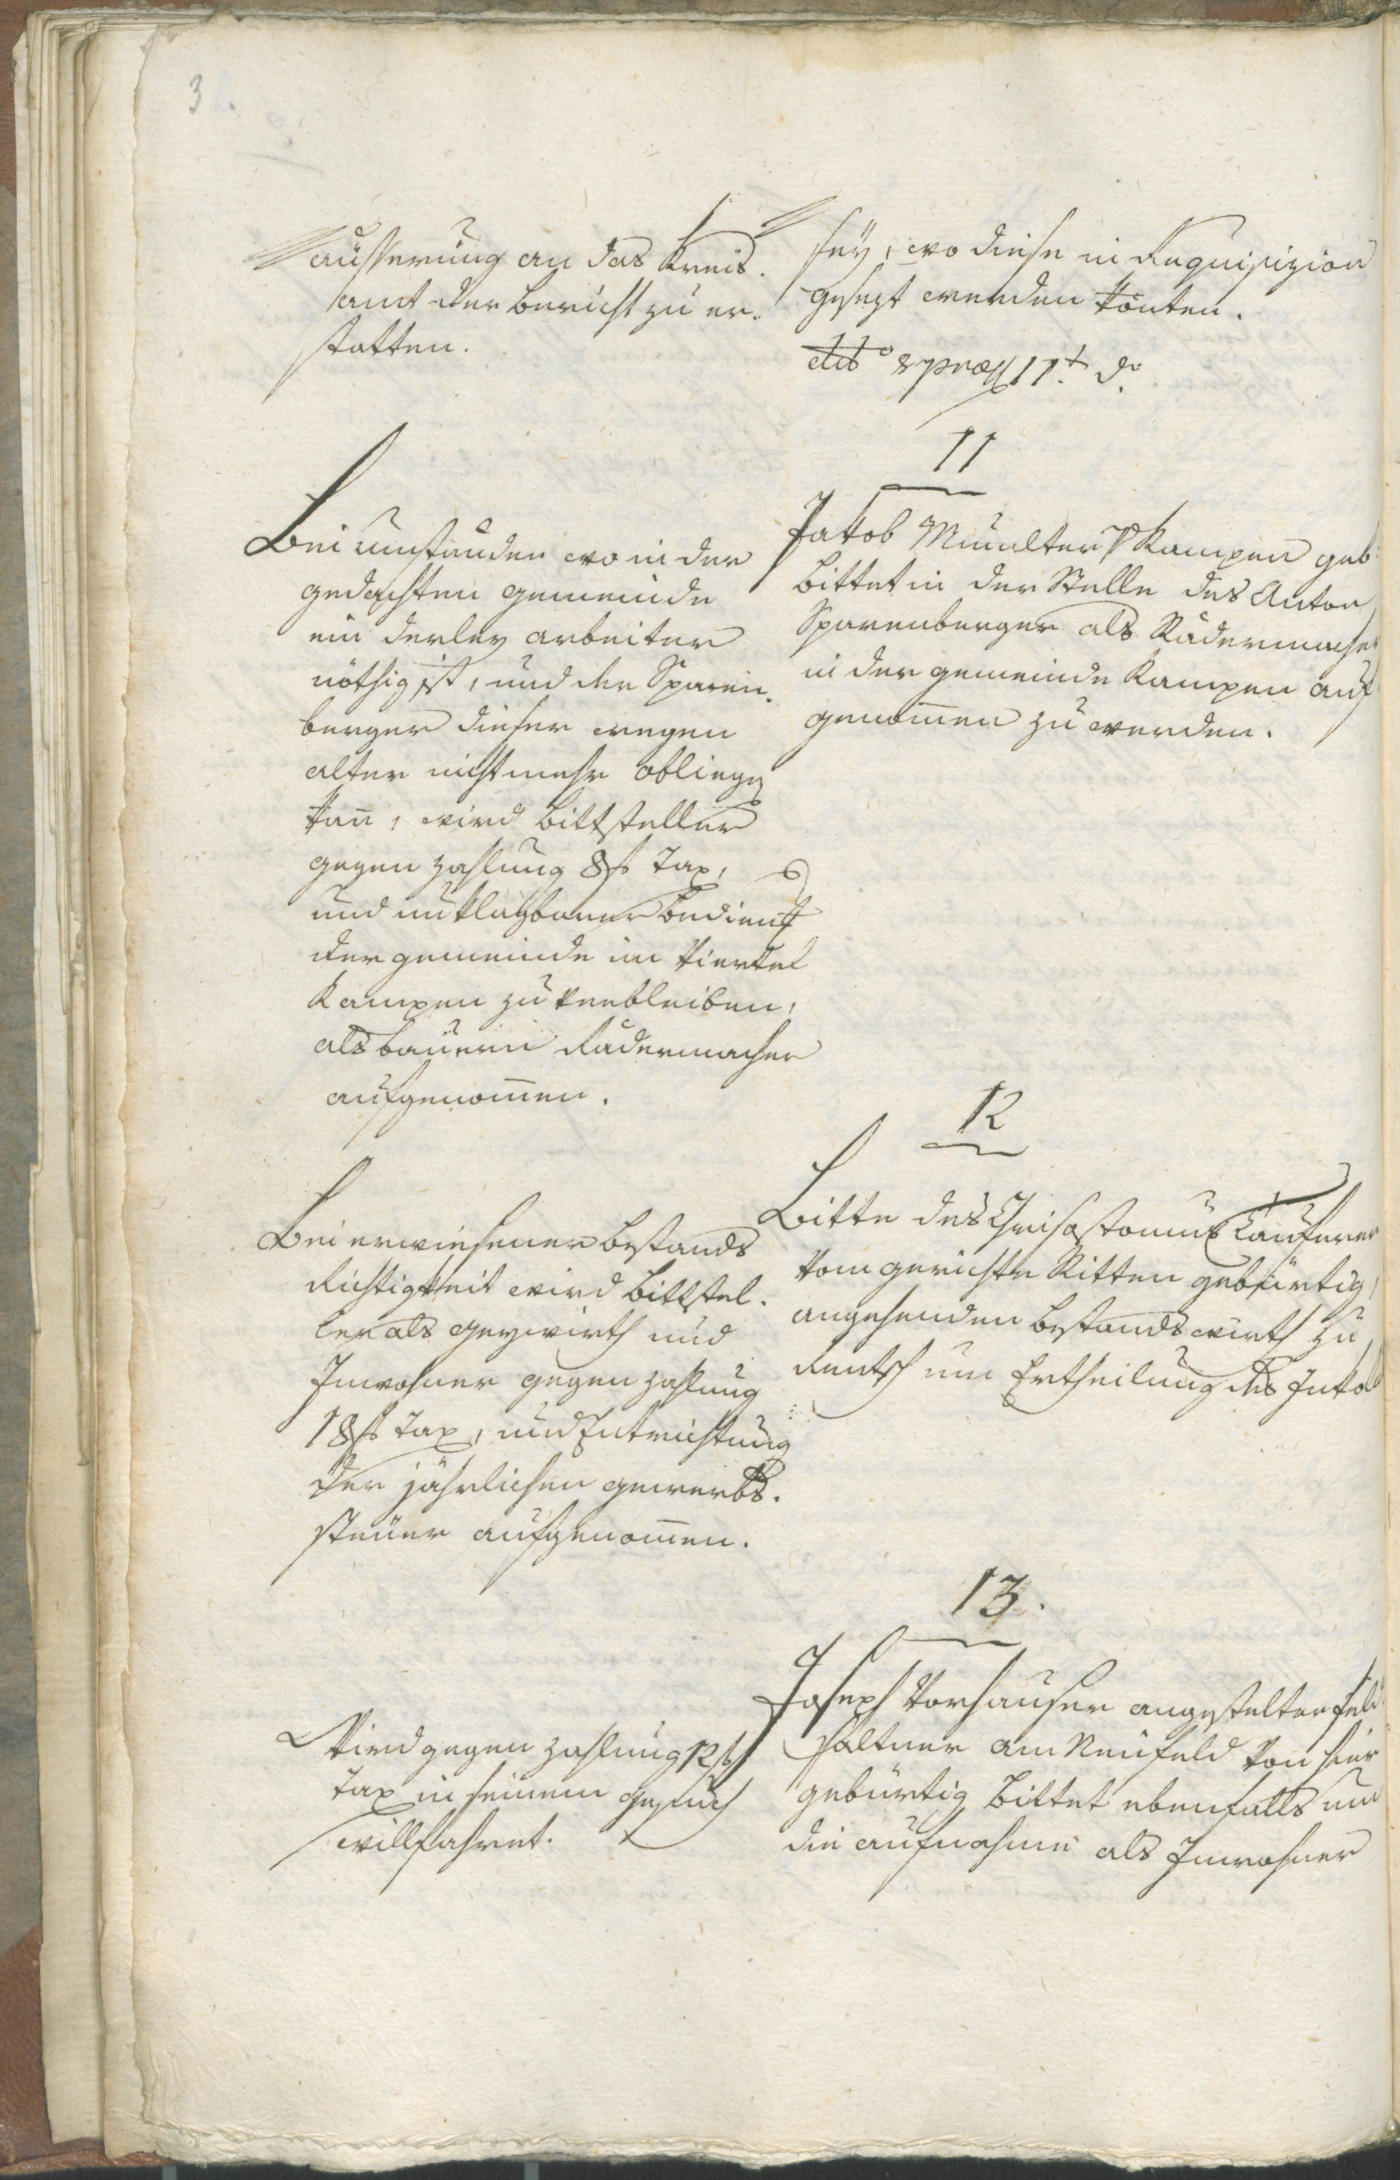 3.
äusserung an das Kreis-
amt der Bericht zu er-
statten.
sey, wo diese in Requisizion
gesezt werden könten.
dto & praes 11t do
11
Bei umständen wo in der
gedachten gemeinde
ein derley arbeiter
nöthig ist, und der Sparen-
berger dieser wegen
alter nicht mehr obliegen
kann, wird bittsteller
gegen zahlung 8 f Tax,
und unklagbarer Bedienung
der gemeinde im Viertel
Kampen zu verbleiben,
als bauern Radermacher
aufgenommen.
Jakob Mumelter Kampen geb:
bittet in der Stelle des Anton
Sparenberger als Radermacher
in der gemeinde Kampen auf
genommen zu werden.
12
Bei erwiesener Bestands
Richtigkeit wird Bittstel-
ler als Gewirth und
Inwohner gegen zahlung
18 f Tax, und Entrichtung
der jährlichen gewerbs-
steuer aufgenommen.
Bitte des Chrisostomus Lauferer
vom gerichte Ritten gebürtig,
angehenden bestandswirth zu
Rentsch um Ertheilung des Inko
13.
Wird gegen zahlung 12 f
Tax in seinem gesuch
willfahret.
Joseph Vorhauser angestelter Feld
saltner am Neufeld von hier
gebürtig bittet ebenfalls um
die aufnahme als Inwohner